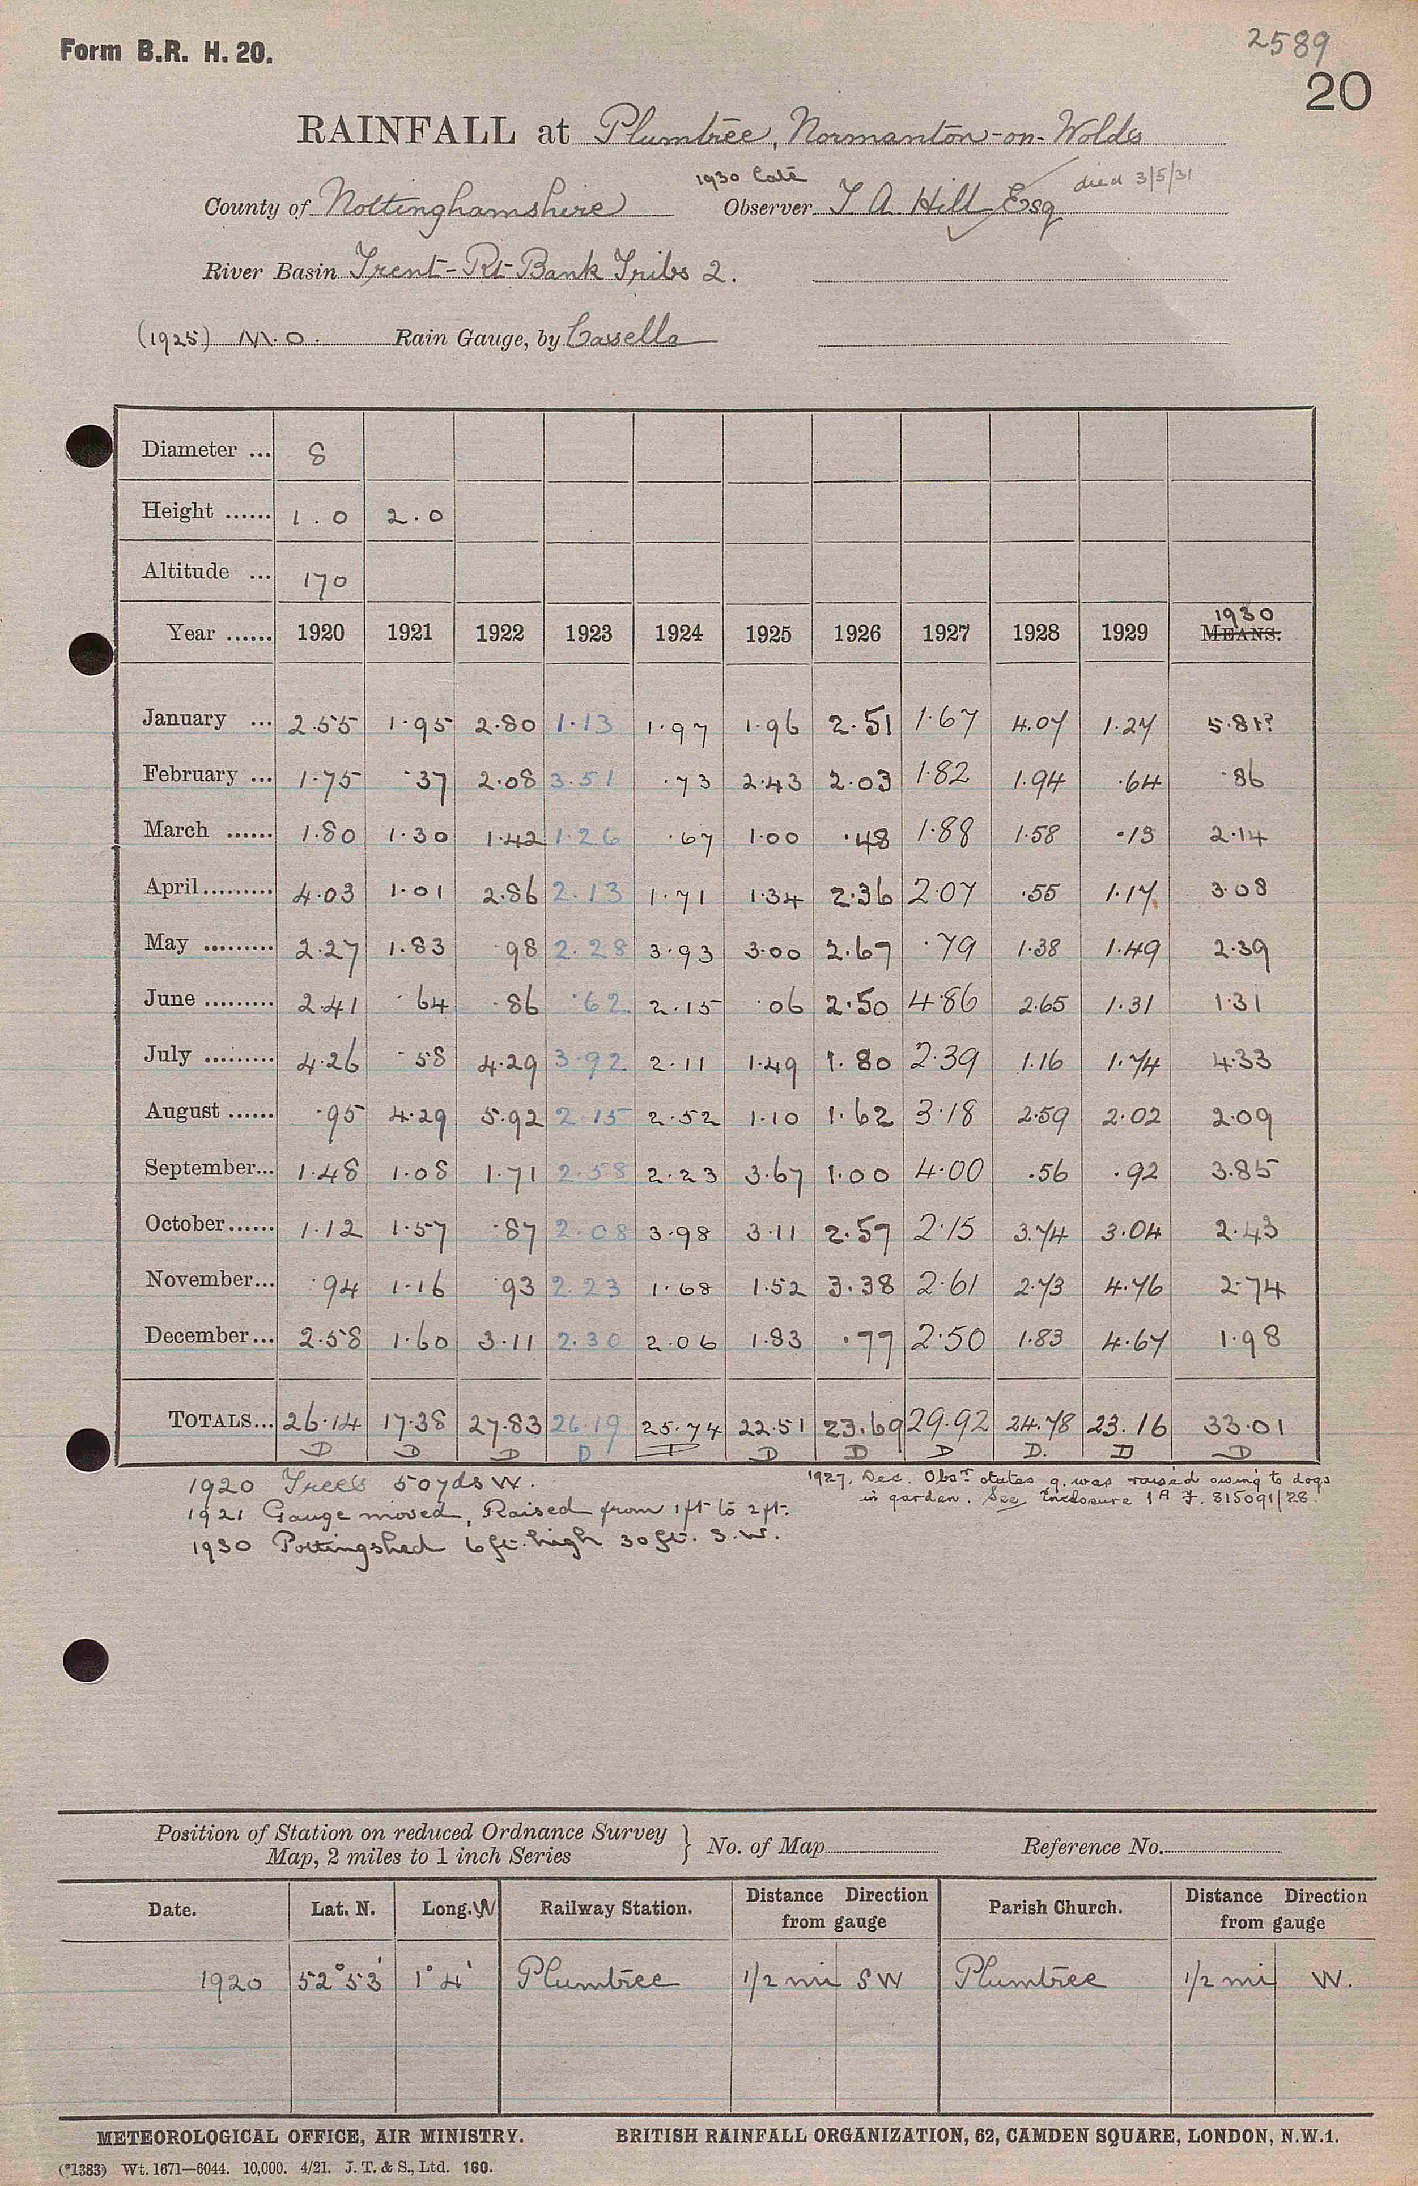 Form B.R. H. 20.
2589
20
RAINFALL at Plumtree, Normanton-on-Wolds
1930 Late
died 3/5/31
County of Nottinghamshire Observer T A Hill Esq
River Basin Trent-Rt Bank Tribs 2.
(1925) M.O. Rain Gauge, by Casella
Diameter ... 8
Height ...... 1.0 2.0
Altitude ... 170
1930
Year ...... 1920 1921 1922 1923 1924 1925 1926 1927 1928 1929 MEANS.
January ... 2.55 1.95 2.80 1.13 1.97 1.96 2.51 1.67 4.07 1.27 5.81?
February ... 1.75 .37 2.08 3.51 .73 2.43 2.03 1.82 1.94 .64 .86
March ...... 1.80 1.30 1.42 1.26 .67 1.00 .48 1.88 1.58 .13 2.14
April ......... 4.03 1.01 2.86 2.13 1.71 1.34 2.36 2.07 .55 1.17 3.08
May ......... 2.27 1.83 .98 2.28 3.93 3.00 2.67 .79 1.38 1.49 2.39
June ......... 2.41 .64 .86 .62 2.15 .06 2.50 4.86 2.65 1.31 1.31
July ......... 4.26 .58 4.29 3.92 2.11 1.49 1.80 2.39 1.16 1.74 4.33
August ...... .95 4.29 5.92 2.15 2.52 1.10 1.62 3.18 2.59 2.02 2.09
September... 1.48 1.08 1.71 2.58 2.23 3.67 1.00 4.00 .56 .92 3.85
October...... 1.12 1.57 .87 2.08 3.98 3.11 2.57 2.15 3.74 3.04 2.43
November... .94 1.16 .93 2.23 1.68 1.52 3.38 2.61 2.73 4.76 2.74
December... 2.58 1.60 3.11 2.30 2.06 1.83 .77 2.50 1.83 4.67 1.98
TOTALS... 26.14 17.38 27.83 26.19 25.74 22.51 23.69 29.92 24.78 23.16 33.01
D D D D D D D D D. D D
1920 Trees 50yds W.
1927, Dec. Obsr. states g. was raised owing to dogs
in garden. See Enclosure 1A F. 815091/28.
1921 Gauge moved, Raised from 1ft to 2ft.
1930 Pottingshed 6ft. high 30ft. S.W.
Position of Station on reduced Ordnance Survey
Map, 2 miles to 1 inch Series
No. of Map Reference No.
Date. Lat. N. Long. W Railway Station. Distance Direction from gauge Parish Church. Distance Direction from gauge
1920 52°53' 1°4' Plumtree 1/2 mi SW Plumtree 1/2 mi W.
METEOROLOGICAL OFFICE, AIR MINISTRY. BRITISH RAINFALL ORGANIZATION, 62, CAMDEN SQUARE, LONDON, N.W.1.
(*1383) Wt. 1671—6044. 10,000. 4/21. J. T. & S., Ltd. 160.